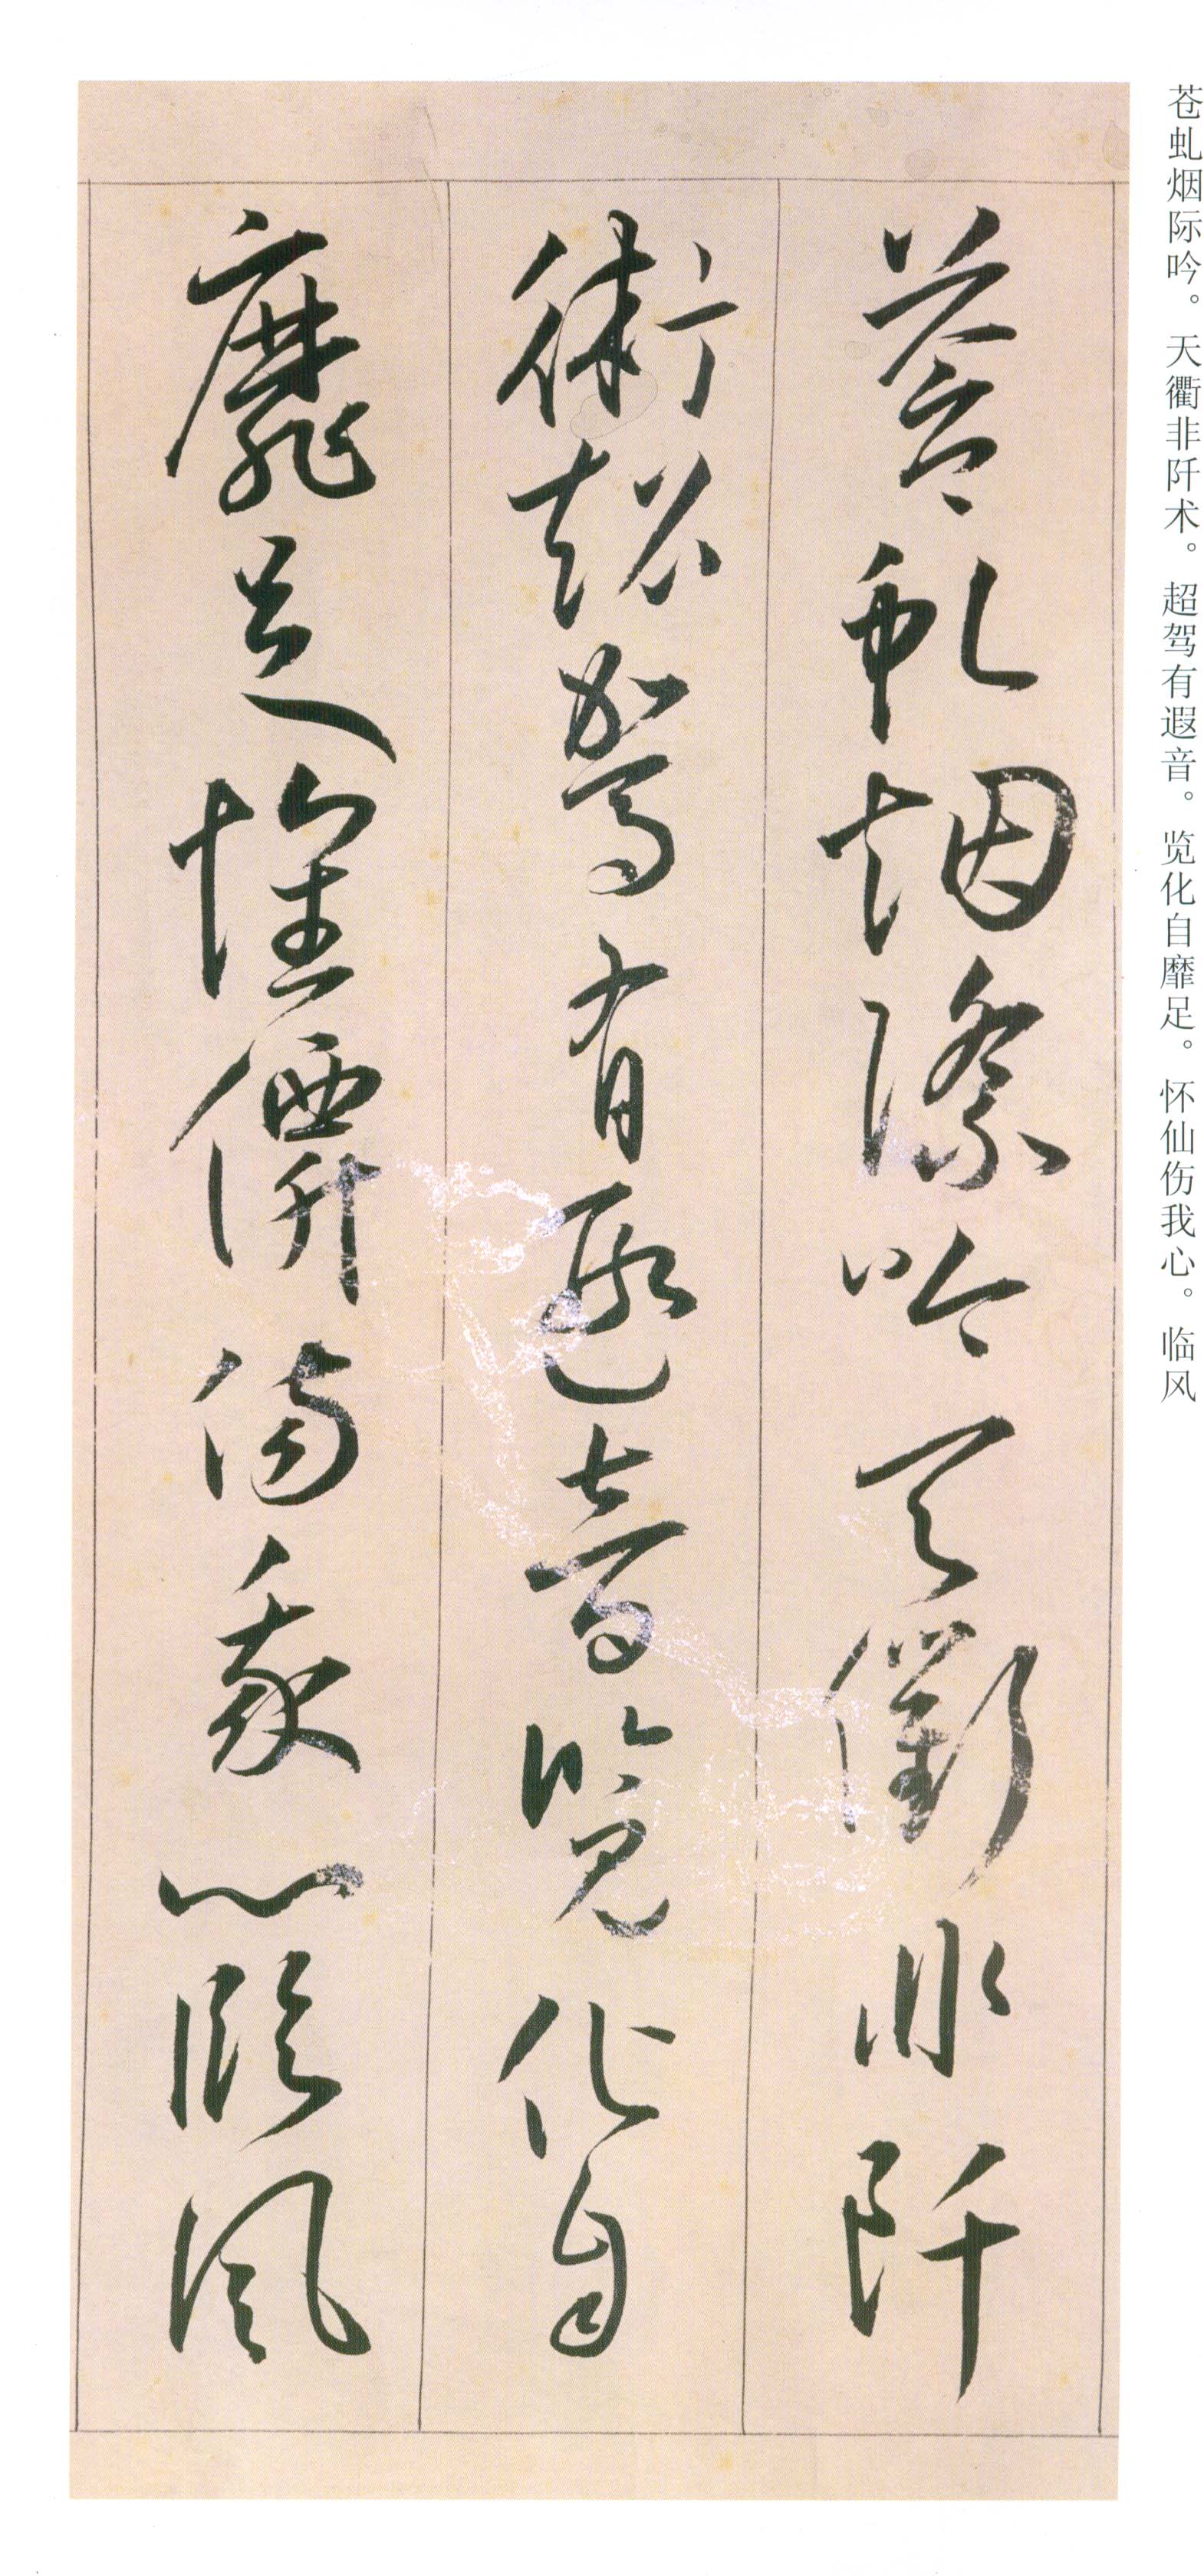 苍虬烟际吟。天衢非阡术。超驾有遐音。览化自靡足。怀仙伤我心。临风
蒼虬烟際吟天衢非阡
術超駕有遐音览化自
靡足懷僊傷我心臨風